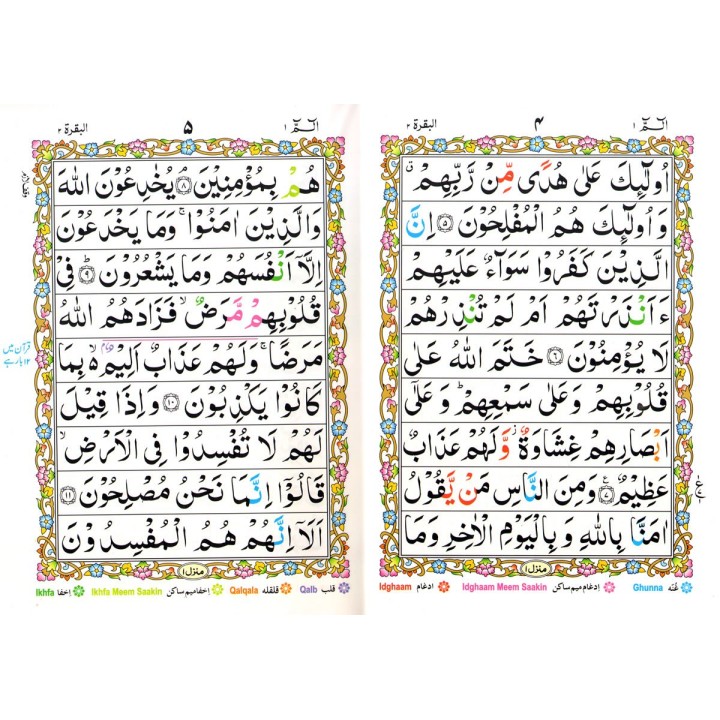 الٓمّٓ ١
٤
البقرة ٢
اُولٰٓئِكَ عَلٰى هُدًى مِّنْ رَّبِّهِمْ ۗ
وَاُولٰٓئِكَ هُمُ الْمُفْلِحُوْنَ ۝٥ اِنَّ
الَّذِيْنَ كَفَرُوْا سَوَآءٌ عَلَيْهِمْ
ءَاَنْذَرْتَهُمْ اَمْ لَمْ تُنْذِرْهُمْ
لَا يُؤْمِنُوْنَ ۝٦ خَتَمَ اللّٰهُ عَلٰى
قُلُوْبِهِمْ وَعَلٰى سَمْعِهِمْ ؕ وَعَلٰٓى
اَبْصَارِهِمْ غِشَاوَةٌ ؗ وَّلَهُمْ عَذَابٌ
عَظِيْمٌ ۝٧ وَمِنَ النَّاسِ مَنْ يَّقُوْلُ
اٰمَنَّا بِاللّٰهِ وَبِالْيَوْمِ الْاٰخِرِ وَمَا
منزل ١
Ghunna غنّہ
Idghaam Meem Saakin ادغام میم ساکن
Idghaam ادغام
الٓمّٓ ١
٥
البقرة ٢
هُمْ بِمُؤْمِنِيْنَ ۝٨ يُخٰدِعُوْنَ اللّٰهَ
وَالَّذِيْنَ اٰمَنُوْا ۚ وَمَا يَخْدَعُوْنَ
اِلَّآ اَنْفُسَهُمْ وَمَا يَشْعُرُوْنَ ۝٩ فِيْ
قُلُوْبِهِمْ مَّرَضٌ ۙ فَزَادَهُمُ اللّٰهُ
مَرَضًا ۚ وَلَهُمْ عَذَابٌ اَلِيْمٌ ۙ۬ بِمَا
كَانُوْا يَكْذِبُوْنَ ۝١٠ وَاِذَا قِيْلَ
لَهُمْ لَا تُفْسِدُوْا فِي الْاَرْضِ ۙ
قَالُوْٓا اِنَّمَا نَحْنُ مُصْلِحُوْنَ ۝١١
اَلَآ اِنَّهُمْ هُمُ الْمُفْسِدُوْنَ
قرآن میں
١٢ بار ہے
منزل ١
Qalb قلب
Qalqala قلقلہ
Ikhfa Meem Saakin اخفا میم ساکن
Ikhfa اخفا